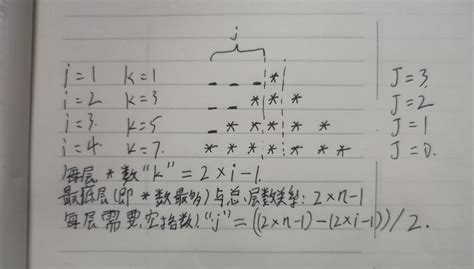 j
i=1 k=1 _ _ _ * J=3
i=2 k=3 _ _ * * * J=2
i=3. k=5 _ * * * * * J=1
i=4. k=7. * * * * * * * J=0.
每层 * 数"k" = 2×i-1
最底层(即 * 数最多)与总层数关系: 2×n-1
每层需要空格数"j" = ((2×n-1)-(2×i-1))/2.